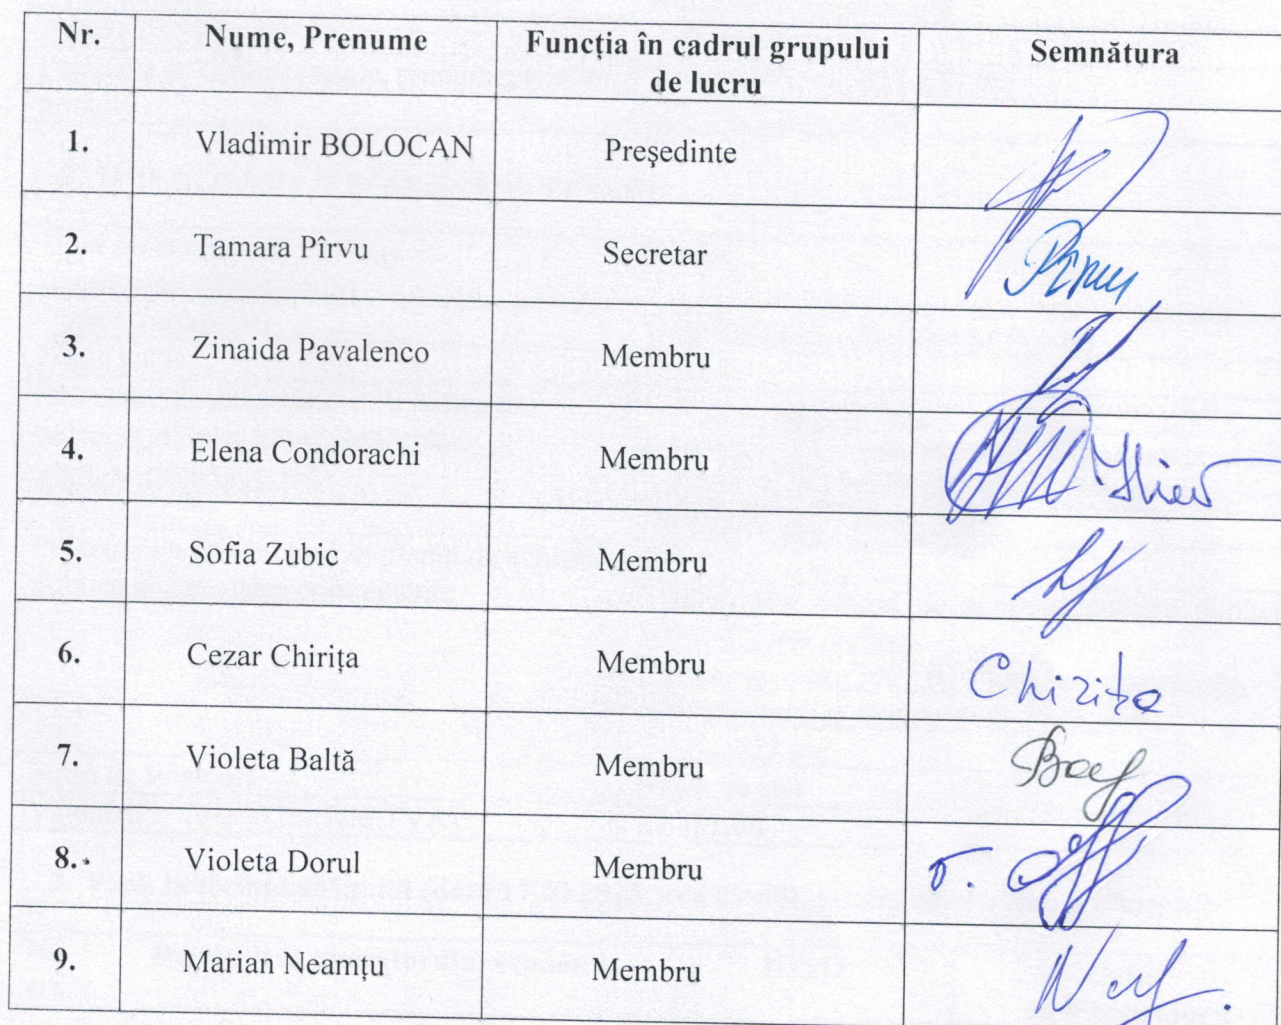 Nr. Nume, Prenume Funcția în cadrul grupului de lucru Semnătura
1. Vladimir BOLOCAN Președinte
2. Tamara Pîrvu Secretar Pîrvu
3. Zinaida Pavalenco Membru
4. Elena Condorachi Membru
5. Sofia Zubic Membru
6. Cezar Chirița Membru Chirița
7. Violeta Baltă Membru
8. Violeta Dorul Membru
9. Marian Neamțu Membru